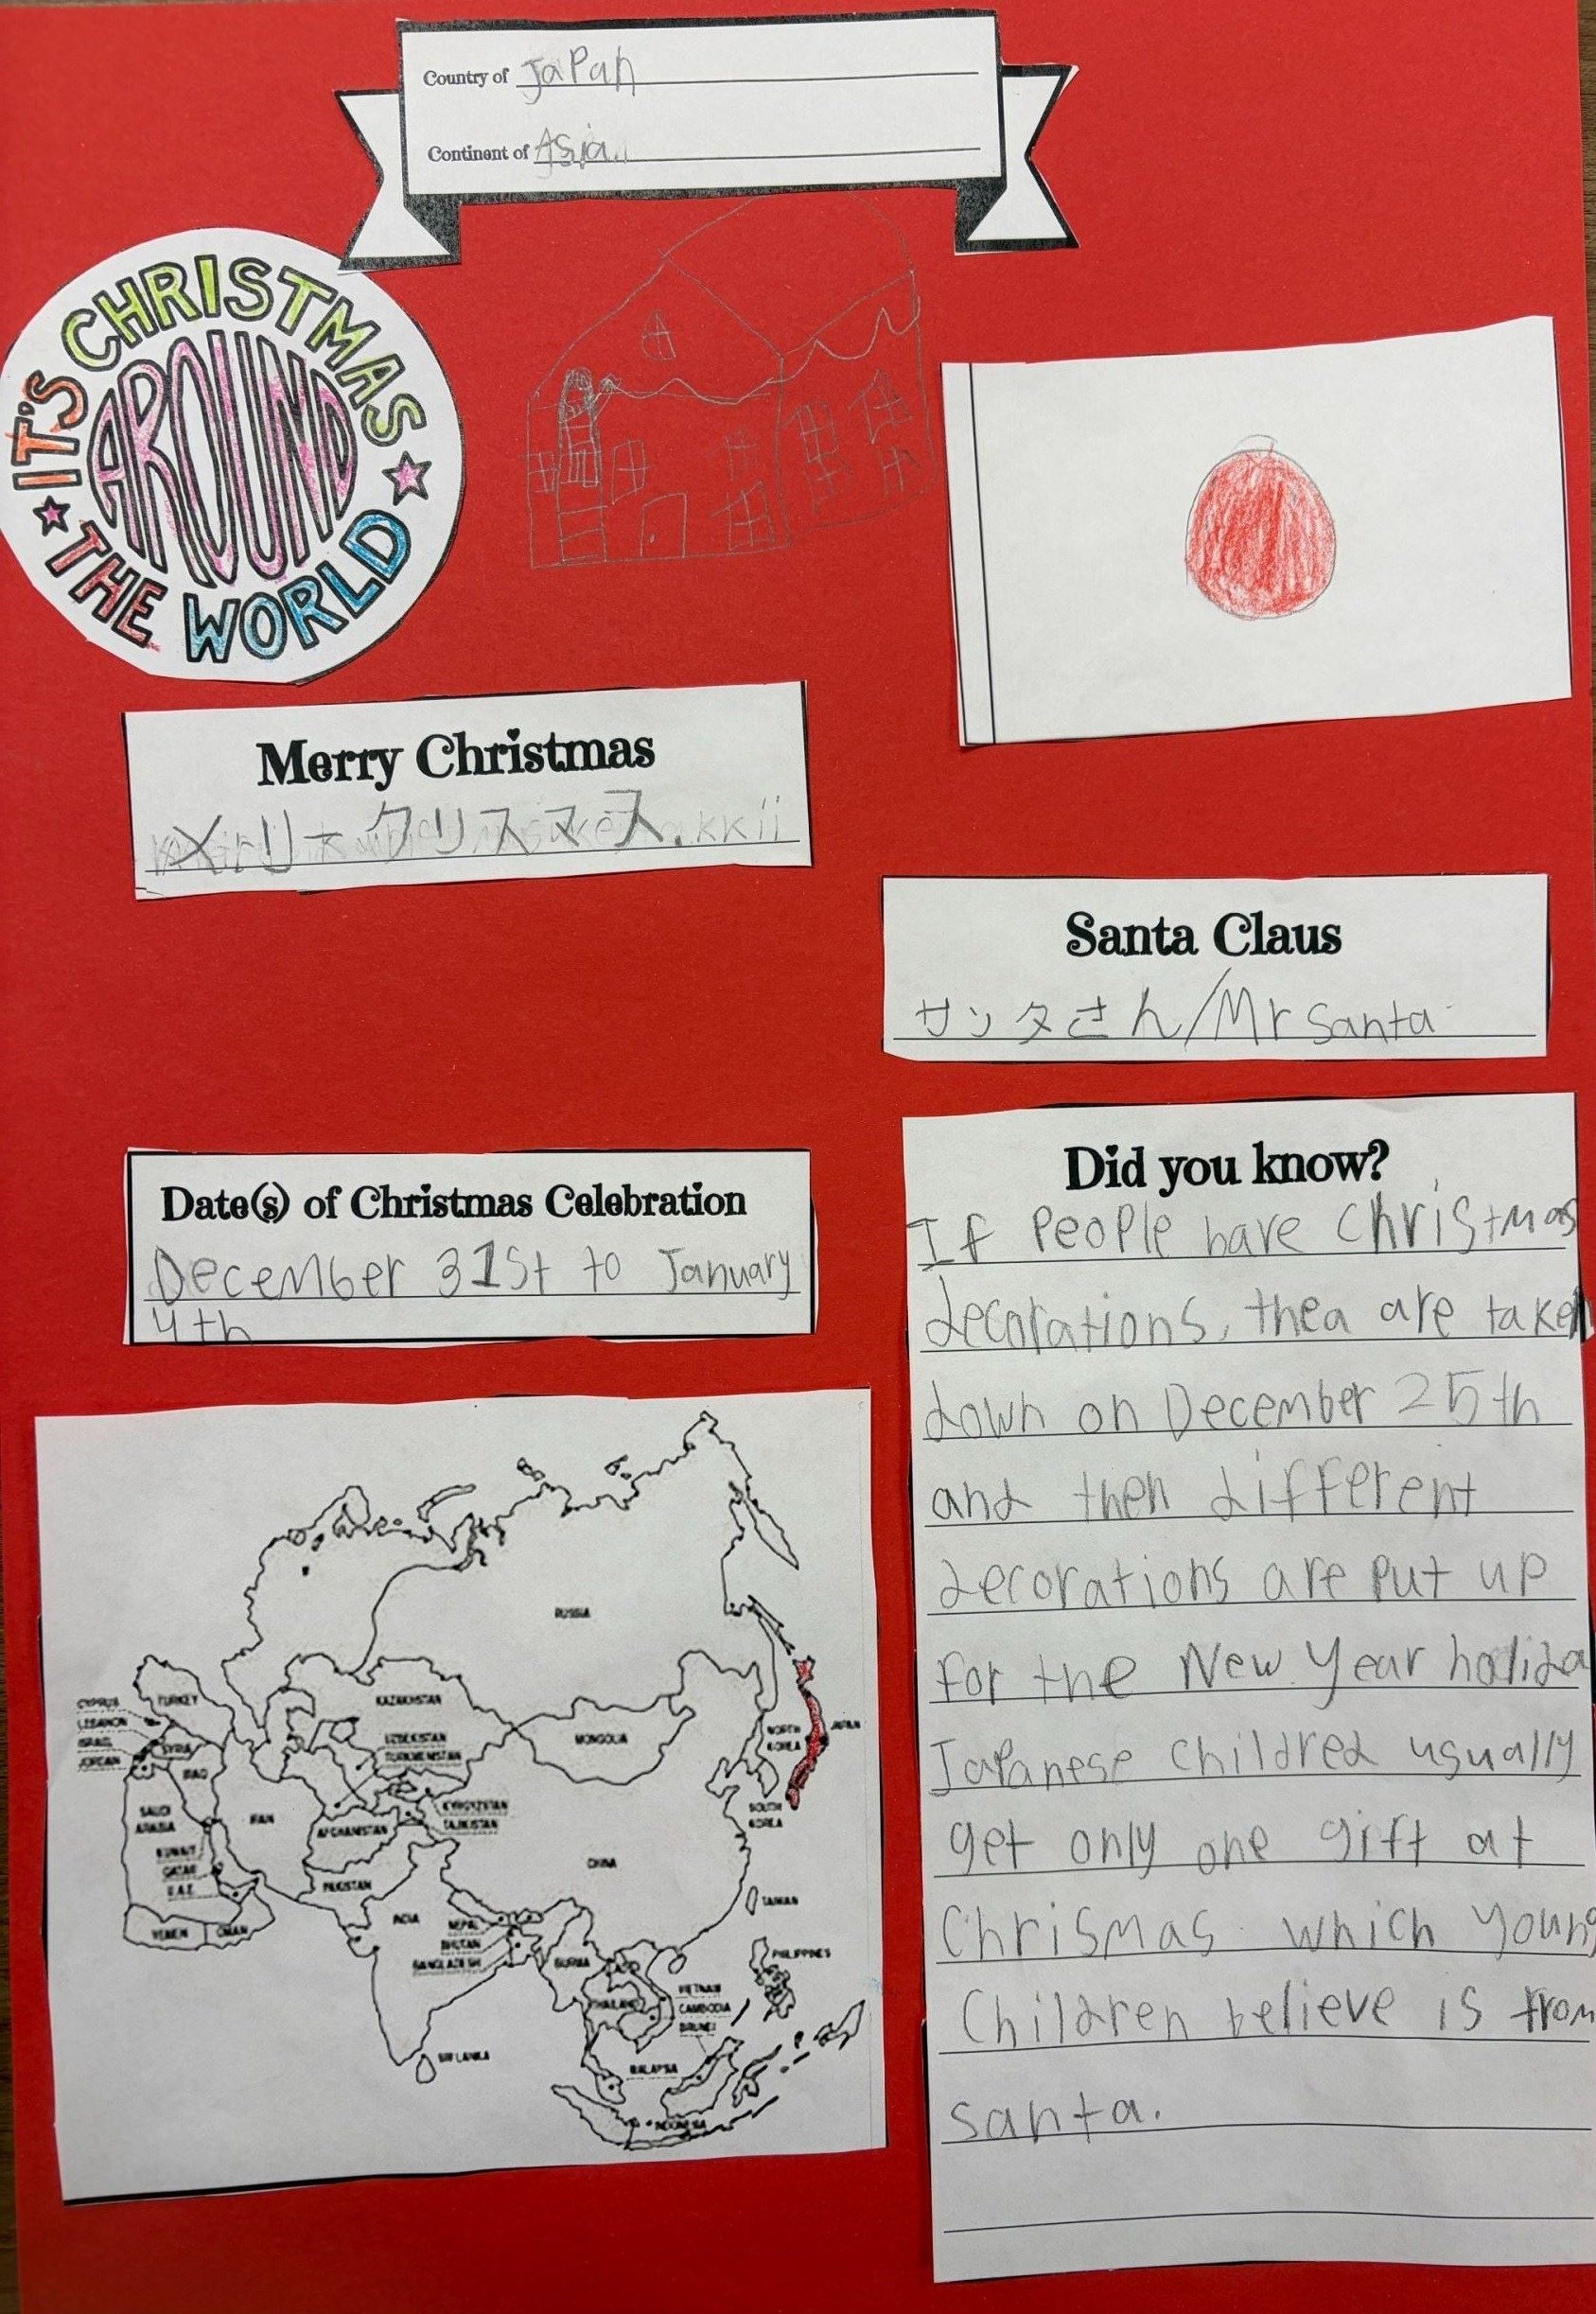 Country of Japan
Continent of Asia.
IT'S CHRISTMAS
AROUND
THE WORLD
Merry Christmas
メリークリスマス.kkii
Santa Claus
サンタさん/Mr Santa
Date(s) of Christmas Celebration
December 31st to January
4th
Did you know?
If People have Christmas
decorations, thea are taken
down on December 25th
and then different
decorations are put up
for the New Year holida
Japanese Childred usually
get only one gift at
Chrismas which young
Children believe is from
santa.
RUSSIA
CYPRUS
TURKEY
LEBANON
ISRAEL
SYRIA
JORDAN
IRAQ
KAZAKHSTAN
UZBEKISTAN
TURKMENISTAN
MONGOLIA
NORTH
KOREA
JAPAN
SOUTH
KOREA
KYRGYZSTAN
TAJIKISTAN
SAUDI
ARABIA
IRAN
AFGHANISTAN
KUWAIT
QATAR
U.A.E.
PAKISTAN
CHINA
YEMEN
OMAN
INDIA
NEPAL
BHUTAN
BANGLADESH
BURMA
LAOS
TAIWAN
PHILIPPINES
THAILAND
VIETNAM
CAMBODIA
BRUNEI
SRI LANKA
MALAYSIA
INDONESIA